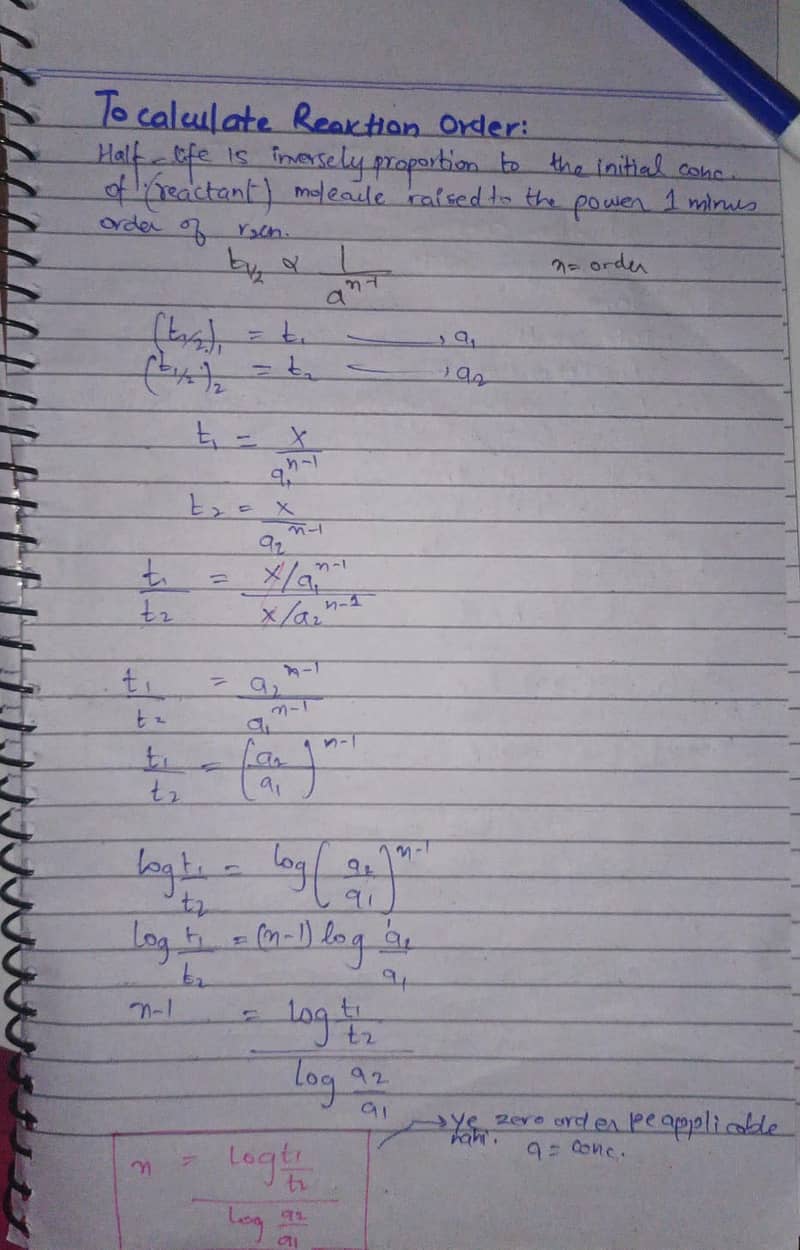 To calculate Reaction Order:
Half-life is inversely proportion to the initial conc.
of (reactant) molecule raised to the power 1 minus
order of rxn.
t½ ∝ 1/a^(n-1) n = order
(t½)₁ = t₁ —, a₁
(t½)₂ = t₂ —, a₂
t₁ = x/a₁^(n-1)
t₂ = x/a₂^(n-1)
t₁/t₂ = (x/a₁^(n-1))/(x/a₂^(n-1))
t₁/t₂ = a₂^(n-1)/a₁^(n-1)
t₁/t₂ = (a₂/a₁)^(n-1)
log t₁/t₂ = log (a₂/a₁)^(n-1)
log t₁/t₂ = (n-1) log a₂/a₁
n-1 = (log t₁/t₂)/(log a₂/a₁)
→ Ye zero order pe applicable
nahi. a = conc.
n = (log t₁/t₂)/(log a₂/a₁)